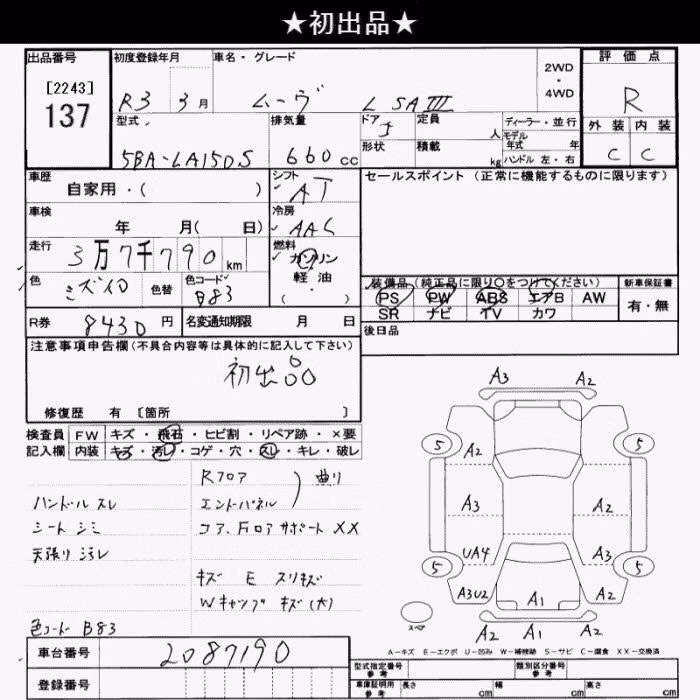 ★初出品★
出品番号
[2243]
137
初度登録年月
R3 3月
車名・グレード
ムーヴ L SAⅢ
2WD
・
4WD
評価点
R
外装 内装
C C
型式
5BA-LA150S
排気量
660 cc
ドア
5
形状
定員
人
積載
kg
ディーラー・並行
モデル
年式 年
ハンドル 左・右
車歴
自家用・( )
シフト
AT
車検
年 月( 日)
冷房
AAC
走行
3万7千790km
燃料
ガソリン
軽油
・
( )
色
ミズイロ
色替
色コード
B83
R券
8430円
名変通知期限 月 日
セールスポイント(正常に機能するものに限ります)
装備品(純正品に限り○をつけてください)
PS PW ABS エアB AW
SR ナビ TV カワ
新車保証書
有・無
後日品
注意事項申告欄(不具合内容等は具体的に記入して下さい)
初出品
修復歴 有 [箇所 ]
検査員
記入欄
FW キズ・飛石・ヒビ割・リペア跡・×要
内装 キズ・汚レ・コゲ・穴・スレ・キレ・破レ
ハンドル スレ
シート シミ
天張り 汚レ
色コード B83
Rフロア
エンドパネル
曲り
コア、Fロア サポート XX
キズ E スリキズ
Wキャップ キズ(大)
A3 A2
5 5
A2
A3 A2
UA4 A3
5 5
A3U2 A1 A2
A2 A1 A2
スペア
A-キズ E-エクボ U-凹み W-補修跡 S-サビ C-腐食 XX-交換済
車台番号
2087190
登録番号
型式指定番号
参考
類別区分番号
参考
車庫証明用
参考
長さ cm 幅 cm 高さ cm